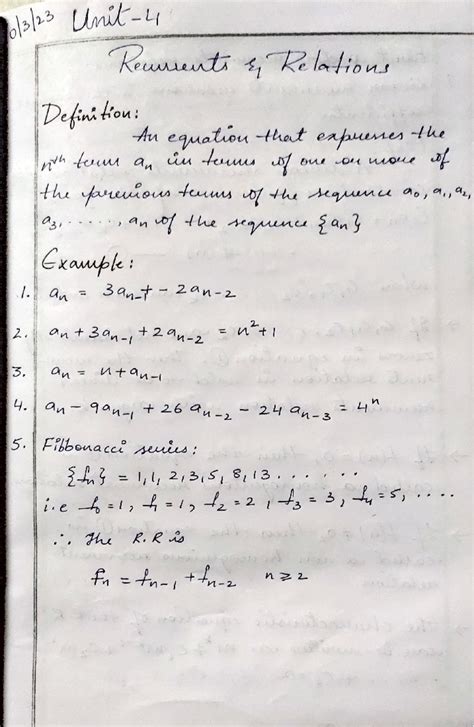 0/3/23 Unit-4
Recurrents & Relations
Definition:
An equation that expresses the
nth term an in terms of one or more of
the previous terms of the sequence a0, a1, a2,
a3, ......, an of the sequence {an}
Example:
1. an = 3an-1 - 2an-2
2. an + 3an-1 + 2an-2 = n²+1
3. an = n + an-1
4. an - 9an-1 + 26 an-2 - 24 an-3 = 4ⁿ
5. Fibbonacci series:
{fn} = 1, 1, 2, 3, 5, 8, 13, ......
i.e f0 = 1, f1 = 1, f2 = 2, f3 = 3, f4 = 5, ....
∴ The R.R is
fn = fn-1 + fn-2 n ≥ 2